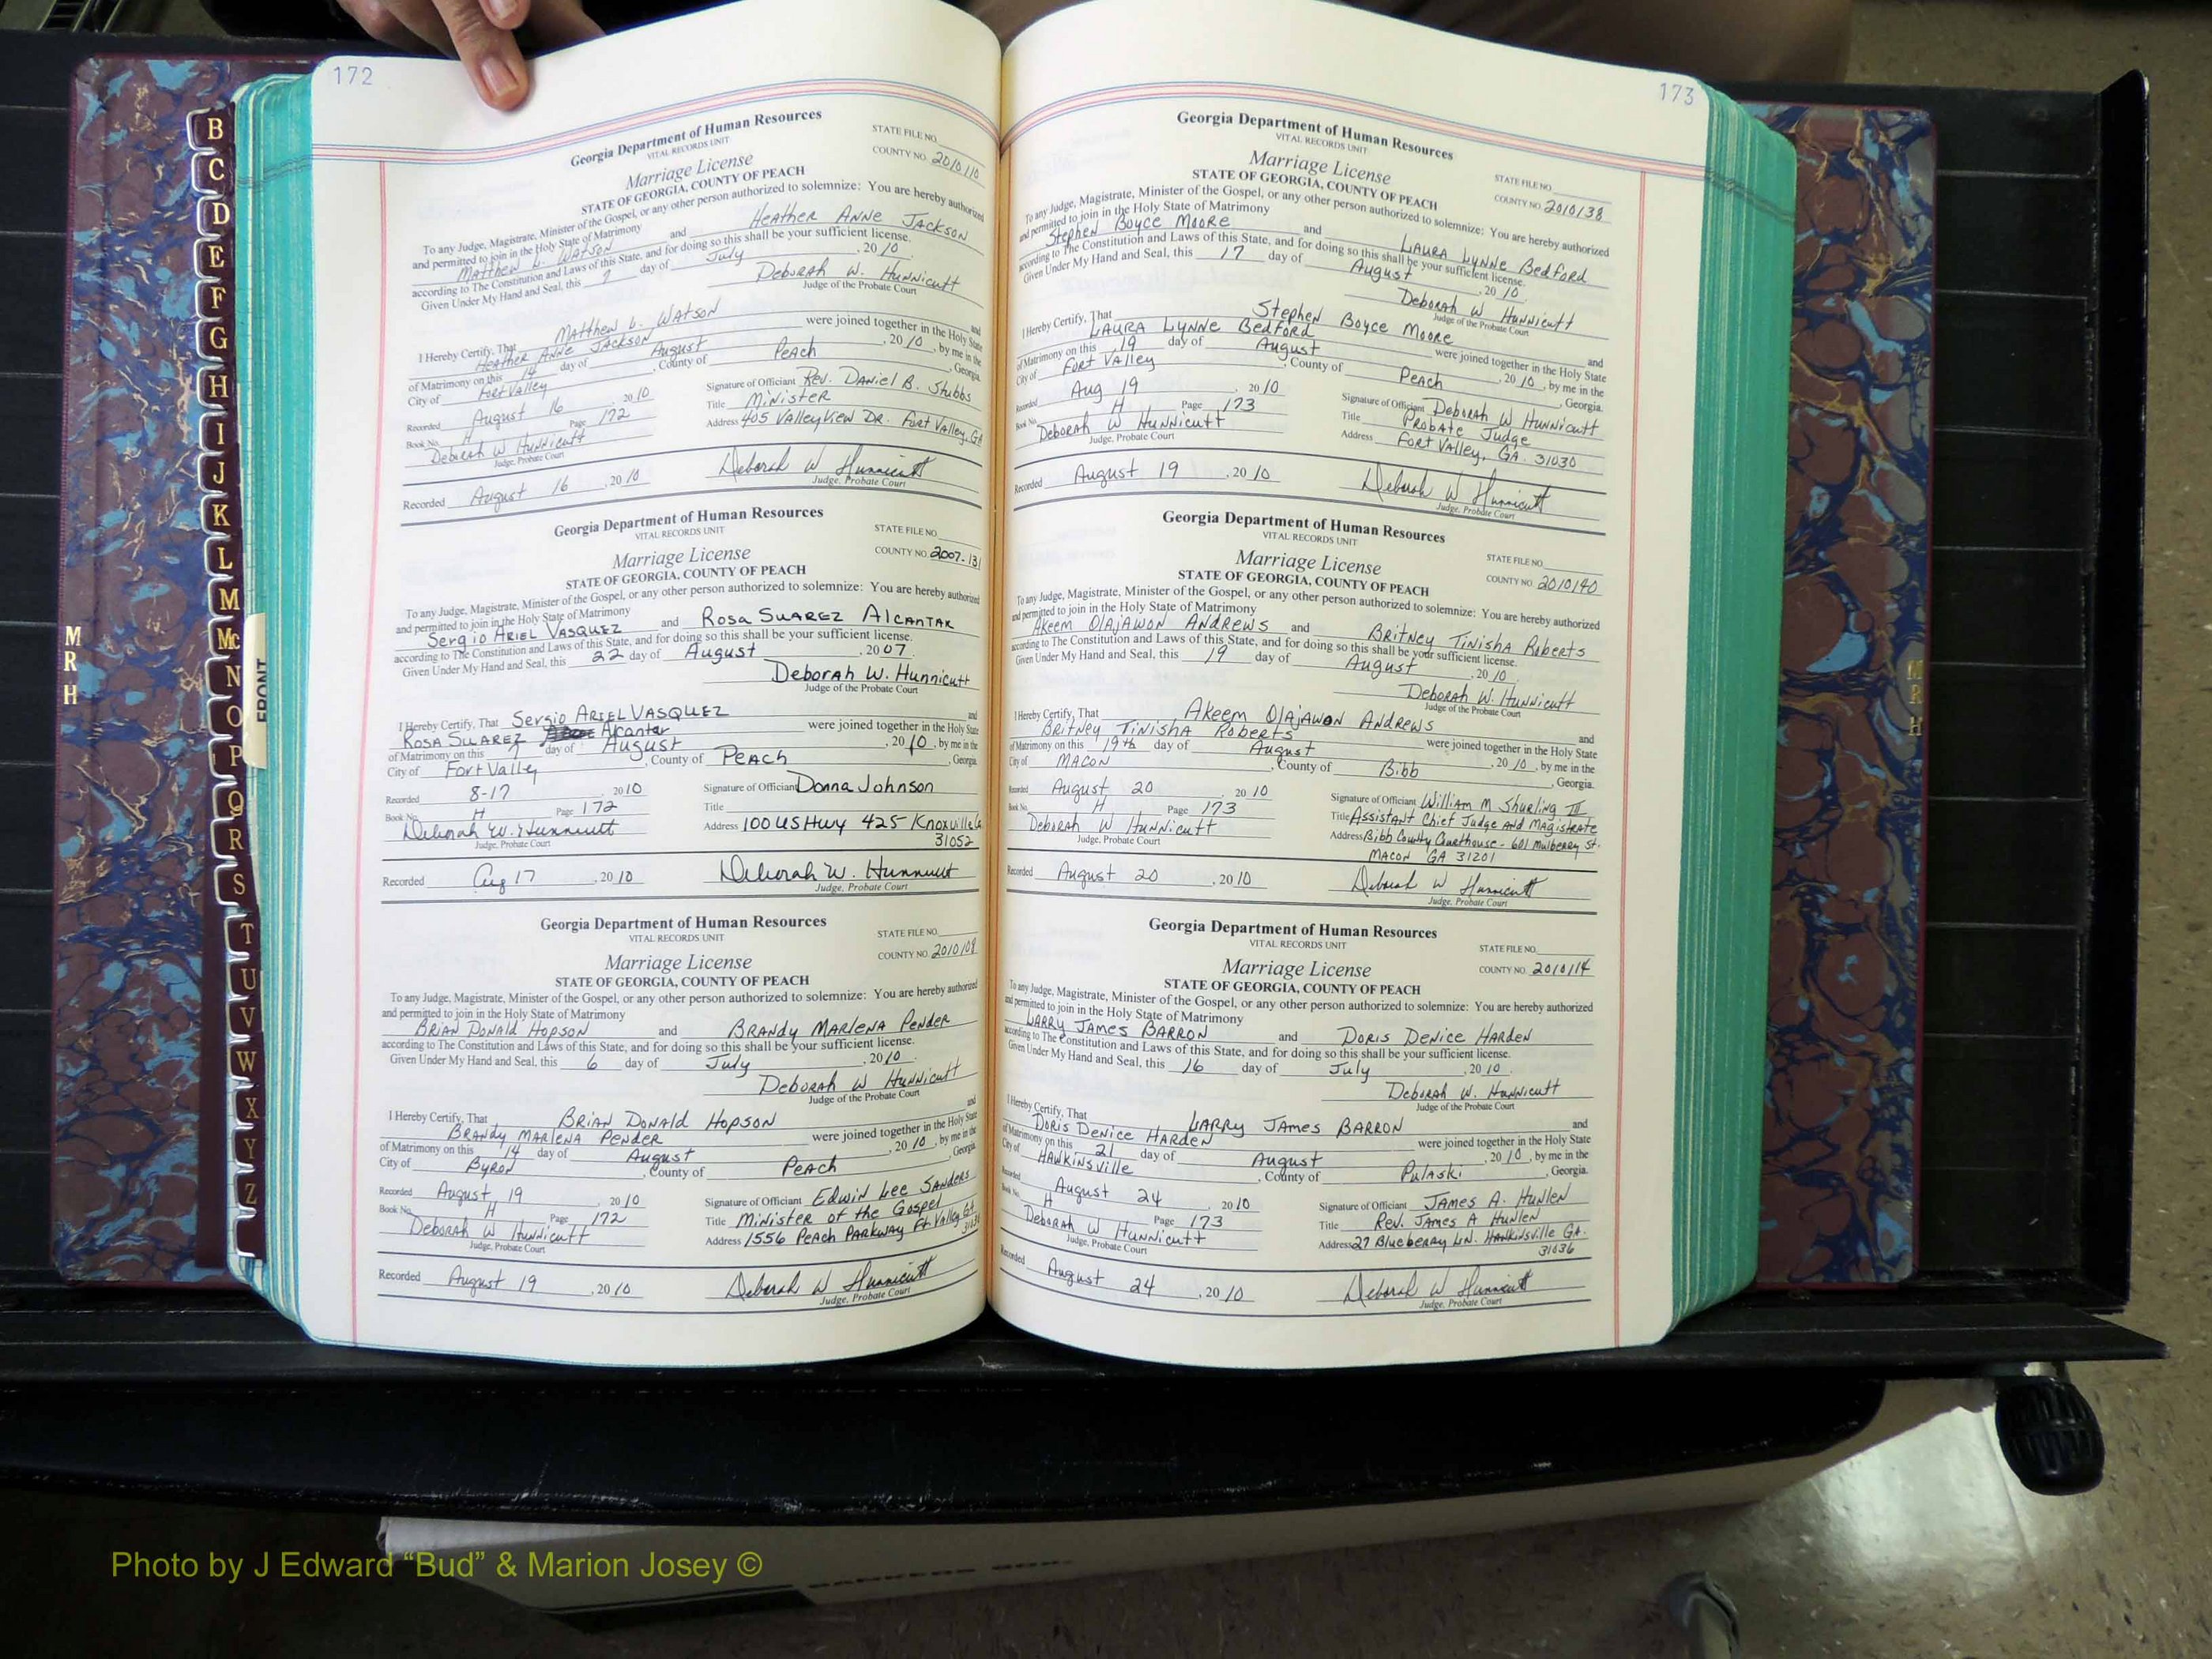 172
Georgia Department of Human Resources
VITAL RECORDS UNIT
STATE FILE NO.
Marriage License
COUNTY NO. 2010110
STATE OF GEORGIA, COUNTY OF PEACH
To any Judge, Magistrate, Minister of the Gospel, or any other person authorized to solemnize: You are hereby authorized
and permitted to join in the Holy State of Matrimony
Matthew L. Watson and Heather Anne Jackson
according to The Constitution and Laws of this State, and for doing so this shall be your sufficient license.
Given Under My Hand and Seal, this 7 day of July, 2010.
Deborah W. Hunnicutt
Judge of the Probate Court
I Hereby Certify, That Matthew L. Watson and
Heather Anne Jackson were joined together in the Holy State
of Matrimony on this 14 day of August, 2010, by me in the
City of Fort Valley, County of Peach, Georgia.
Recorded August 16 2010
Signature of Officiant Rev. Daniel B. Stubbs
Book No. H Page 172
Title Minister
Deborah W Hunnicutt
Address 405 Valleyview Dr. Fort Valley, GA
Judge, Probate Court
Recorded August 16, 2010
Deborah W Hunnicutt
Judge, Probate Court
Georgia Department of Human Resources
VITAL RECORDS UNIT
STATE FILE NO.
Marriage License
COUNTY NO. 2007-131
STATE OF GEORGIA, COUNTY OF PEACH
To any Judge, Magistrate, Minister of the Gospel, or any other person authorized to solemnize: You are hereby authorized
and permitted to join in the Holy State of Matrimony
Sergio Ariel Vasquez and Rosa Suarez Alcantar
according to The Constitution and Laws of this State, and for doing so this shall be your sufficient license.
Given Under My Hand and Seal, this 22 day of August, 2007.
Deborah W. Hunnicutt
Judge of the Probate Court
I Hereby Certify, That Sergio Ariel Vasquez and
Rosa Suarez Alcantar were joined together in the Holy State
of Matrimony on this 7 day of August, 2010, by me in the
City of Fort Valley, County of Peach, Georgia.
Recorded 8-17 2010
Signature of Officiant Donna Johnson
Book No. H Page 172
Title
Deborah W. Hunnicutt
Address 100 US Hwy 425 Knoxville Ga
31052
Judge, Probate Court
Recorded Aug 17, 2010
Deborah W. Hunnicutt
Judge, Probate Court
Georgia Department of Human Resources
VITAL RECORDS UNIT
STATE FILE NO.
Marriage License
COUNTY NO. 2010109
STATE OF GEORGIA, COUNTY OF PEACH
To any Judge, Magistrate, Minister of the Gospel, or any other person authorized to solemnize: You are hereby authorized
and permitted to join in the Holy State of Matrimony
Brian Donald Hopson and Brandy Marlena Pender
according to The Constitution and Laws of this State, and for doing so this shall be your sufficient license.
Given Under My Hand and Seal, this 6 day of July, 2010.
Deborah W Hunnicutt
Judge of the Probate Court
I Hereby Certify, That Brian Donald Hopson and
Brandy Marlena Pender were joined together in the Holy State
of Matrimony on this 14 day of August, 2010, by me in the
City of Byron, County of Peach, Georgia.
Recorded August 19, 2010
Signature of Officiant Edwin Lee Sanders
Book No. H Page 172
Title Minister of the Gospel
Deborah W Hunnicutt
Address 1556 Peach Parkway Ft. Valley GA
Judge, Probate Court
Recorded August 19, 2010
Deborah W Hunnicutt
Judge, Probate Court
173
Georgia Department of Human Resources
VITAL RECORDS UNIT
STATE FILE NO.
Marriage License
COUNTY NO. 2010138
STATE OF GEORGIA, COUNTY OF PEACH
To any Judge, Magistrate, Minister of the Gospel, or any other person authorized to solemnize: You are hereby authorized
and permitted to join in the Holy State of Matrimony
Stephen Boyce Moore and Laura Lynne Bedford
according to The Constitution and Laws of this State, and for doing so this shall be your sufficient license.
Given Under My Hand and Seal, this 17 day of August, 2010.
Deborah W Hunnicutt
Judge of the Probate Court
I Hereby Certify, That Stephen Boyce Moore and
Laura Lynne Bedford were joined together in the Holy State
of Matrimony on this 19 day of August, 2010, by me in the
City of Fort Valley, County of Peach, Georgia.
Recorded Aug 19, 2010
Signature of Officiant Deborah W Hunnicutt
Book No. H Page 173
Title Probate Judge
Deborah W Hunnicutt
Address Fort Valley, GA. 31030
Judge, Probate Court
Recorded August 19, 2010
Deborah W Hunnicutt
Judge, Probate Court
Georgia Department of Human Resources
VITAL RECORDS UNIT
STATE FILE NO.
Marriage License
COUNTY NO. 2010140
STATE OF GEORGIA, COUNTY OF PEACH
To any Judge, Magistrate, Minister of the Gospel, or any other person authorized to solemnize: You are hereby authorized
and permitted to join in the Holy State of Matrimony
Akeem Olajawon Andrews and Britney Tinisha Roberts
according to The Constitution and Laws of this State, and for doing so this shall be your sufficient license.
Given Under My Hand and Seal, this 19 day of August, 2010.
Deborah W. Hunnicutt
Judge of the Probate Court
I Hereby Certify, That Akeem Olajawon Andrews and
Britney Tinisha Roberts were joined together in the Holy State
of Matrimony on this 19th day of August, 2010, by me in the
City of Macon, County of Bibb, Georgia.
Recorded August 20, 2010
Signature of Officiant William M Shurling III
Book No. H Page 173
Title Assistant Chief Judge and Magistrate
Deborah W Hunnicutt
Address Bibb County Courthouse - 601 Mulberry St.
Macon GA 31201
Judge, Probate Court
Recorded August 20, 2010
Deborah W Hunnicutt
Judge, Probate Court
Georgia Department of Human Resources
VITAL RECORDS UNIT
STATE FILE NO.
Marriage License
COUNTY NO. 2010114
STATE OF GEORGIA, COUNTY OF PEACH
To any Judge, Magistrate, Minister of the Gospel, or any other person authorized to solemnize: You are hereby authorized
and permitted to join in the Holy State of Matrimony
Larry James Barron and Doris Denice Harden
according to The Constitution and Laws of this State, and for doing so this shall be your sufficient license.
Given Under My Hand and Seal, this 16 day of July, 2010.
Deborah W. Hunnicutt
Judge of the Probate Court
I Hereby Certify, That Larry James Barron and
Doris Denice Harden were joined together in the Holy State
of Matrimony on this 21 day of August, 2010, by me in the
City of Hawkinsville, County of Pulaski, Georgia.
Recorded August 24 2010
Signature of Officiant James A. Hunlen
Book No. H Page 173
Title Rev. James A Hunlen
Deborah W Hunnicutt
Address 27 Blueberry Ln. Hawkinsville GA.
31036
Judge, Probate Court
Recorded August 24, 2010
Deborah W Hunnicutt
Judge, Probate Court
B
C
D
E
F
G
H
I
J
K
L
M
Mc
N
O
P
Q
R
S
T
U
V
W
X
Y
Z
FRONT
M
R
H
M
R
H
Photo by J Edward “Bud” & Marion Josey ©